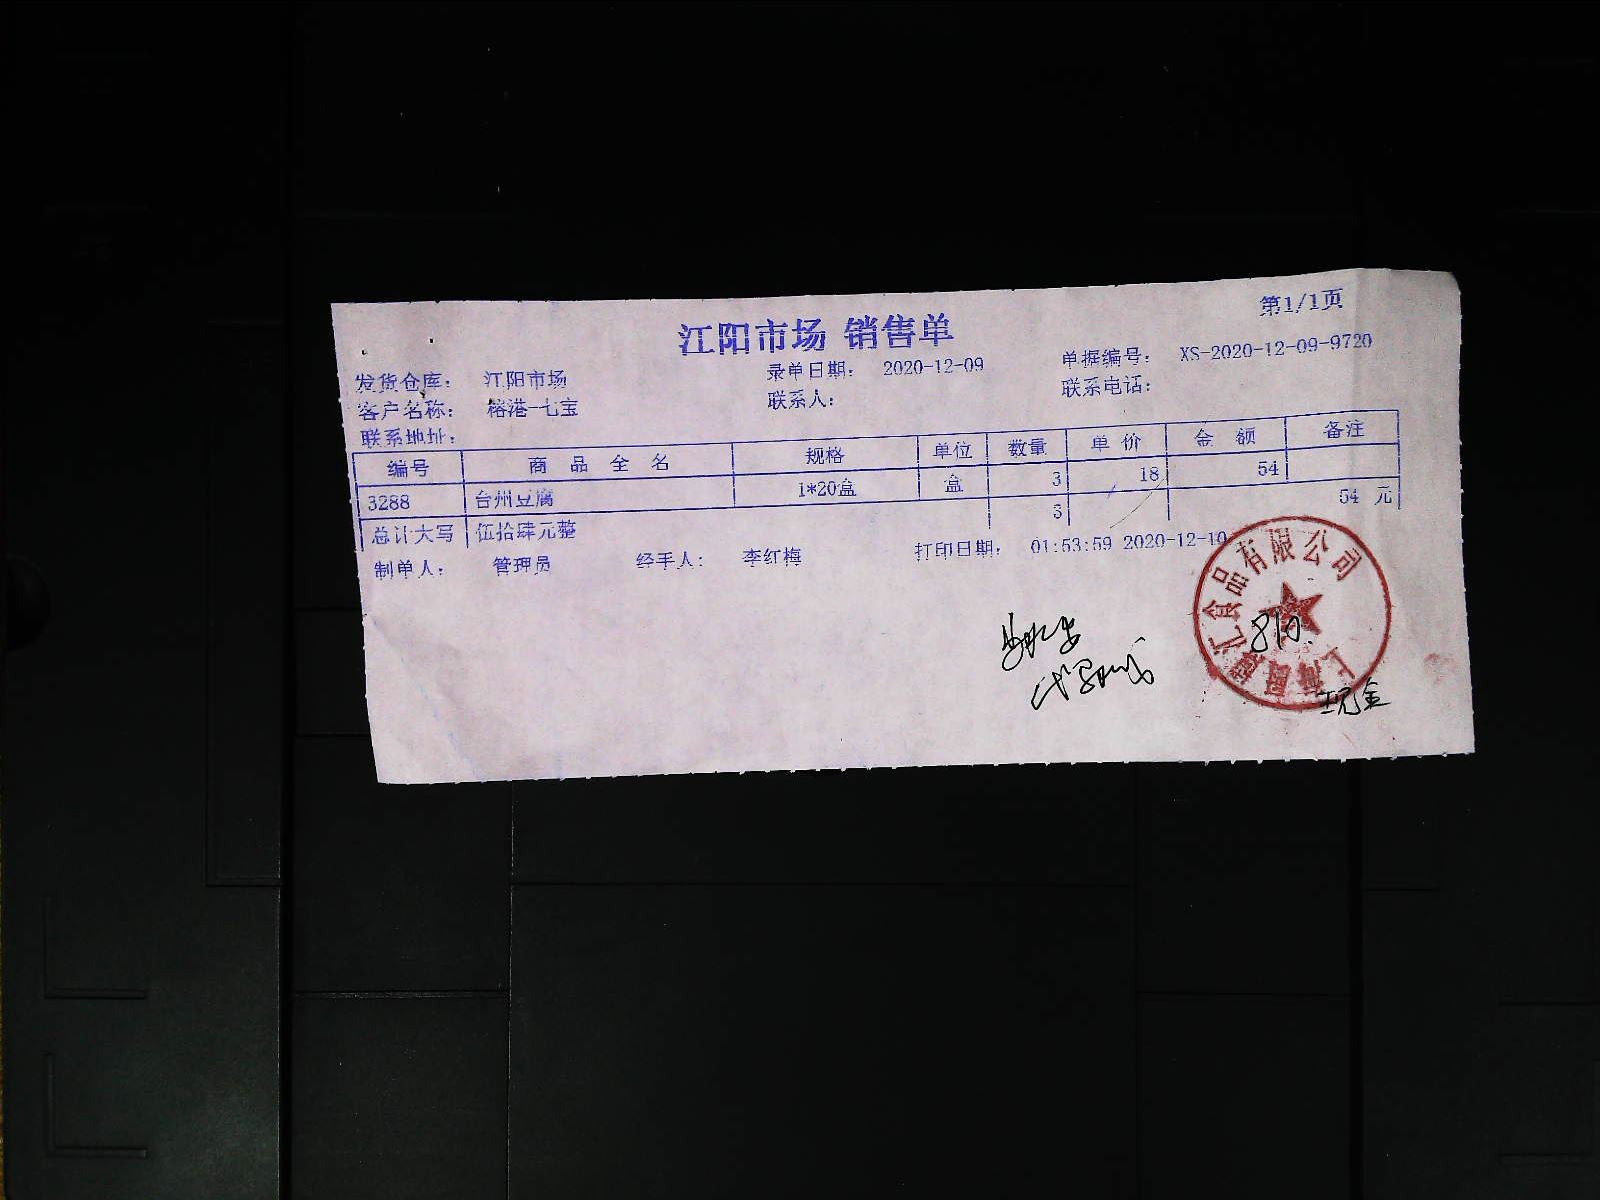 第1/1页
江阳市场 销售单
发货仓库： 江阳市场 录单日期： 2020-12-09 单据编号： XS-2020-12-09-9720
客户名称： 榕港-七宝 联系人： 联系电话：
联系地址：
编号 商品全名 规格 单位 数量 单价 金额 备注
3288 台州豆腐 1*20盒 盒 3 18 54
总计大写 伍拾肆元整 3 54 元
制单人： 管理员 经手人： 李红梅 打印日期： 01:53:59 2020-12-10
食品有限公司
上海
810.
现金